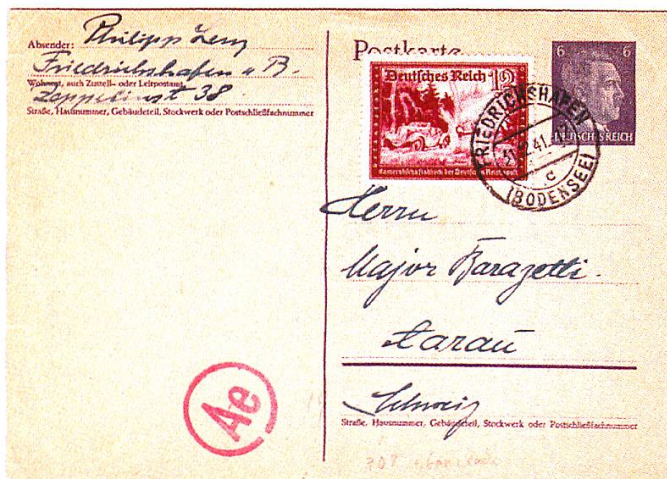 Absender: Philipp Lenz
Friedrichshafen a B.
Wohnort, auch Zustell- oder Leitpostamt
Zeppelinst 38.
Straße, Hausnummer, Gebäudeteil, Stockwerk oder Postschließfachnummer
Postkarte
6 6
Deutsches Reich
DEUTSCHES REICH
Kameradschaftsblock der Deutschen Reichspost
FRIEDRICHSHAFEN
41
c
(BODENSEE)
Herrn
Major Barazetti.
Aarau
Schweiz
Straße, Hausnummer, Gebäudeteil, Stockwerk oder Postschließfachnummer
Ae